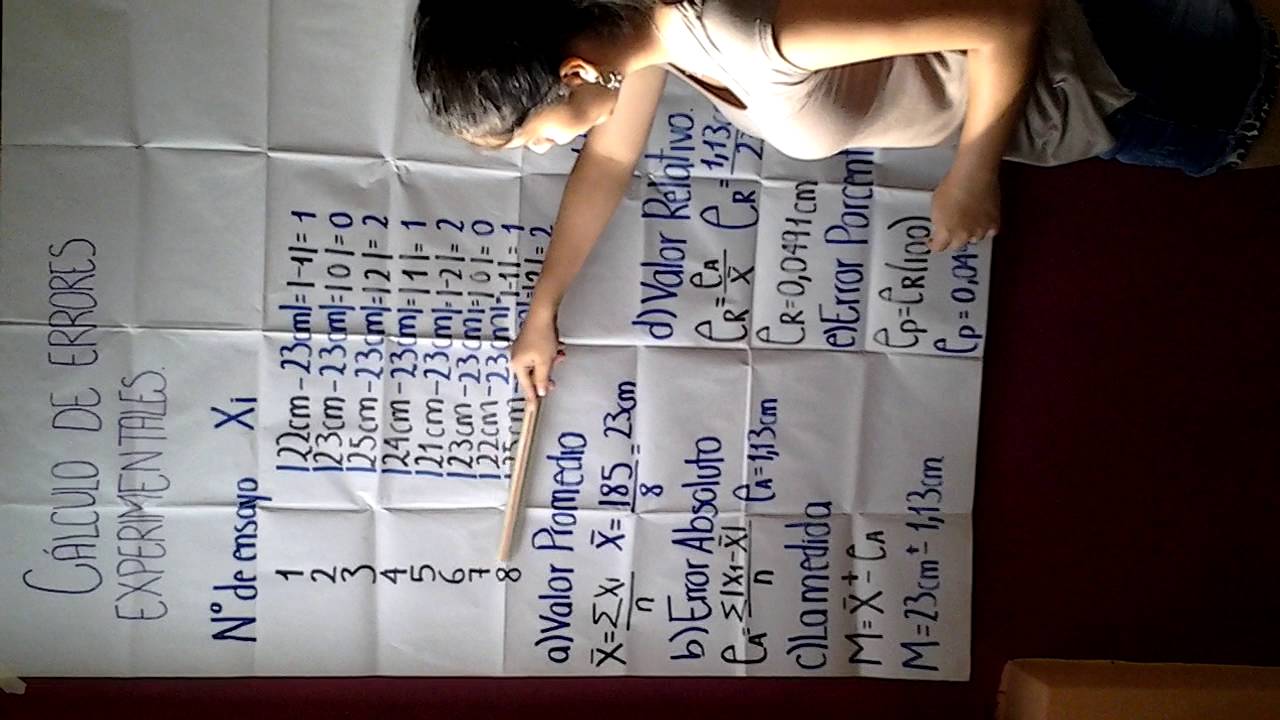 CÁLCULO DE ERRORES
EXPERIMENTALES.
N° de ensayo Xi
1 |22cm-23cm|=|-1|=1
2 |23cm-23cm|=|0|=0
3 |25cm-23cm|=|2|=2
4 |24cm-23cm|=|1|=1
5 |21cm-23cm|=|-2|=2
6 |23cm-23cm|=|0|=0
7 |22cm-23cm|=|-1|=1
8 =2
a) Valor Promedio
X̄=ΣXi/n X̄=185/8=23cm
b) Error Absoluto
eA=Σ|Xi-X̄|/n eA=1,13cm
c) La medida
M=X̄±eA
M=23cm±1,13cm
d) Valor Relativo.
eR=eA/X̄ eR=1,13
eR=0,0491cm
e) Error
eP=eR(100)
eP=0,04